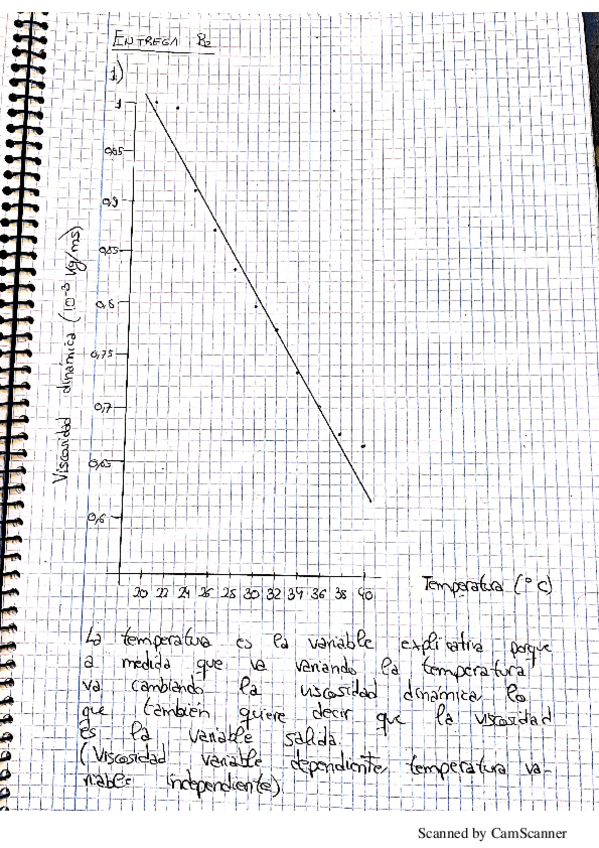 ENTREGA B2
1)
1
0,95
0,9
0,85
0,8
0,75
0,7
0,65
0,6
Viscosidad dinámica (10⁻³ kg/ms)
20 22 24 26 28 30 32 34 36 38 40
Temperatura (°C)
La temperatura es la variable explicativa porque
a medida que va variando la temperatura
va cambiando la viscosidad dinámica lo
que también quiere decir que la viscosidad
es la variable salida.
(Viscosidad variable dependiente, temperatura va-
riable independiente)
Scanned by CamScanner